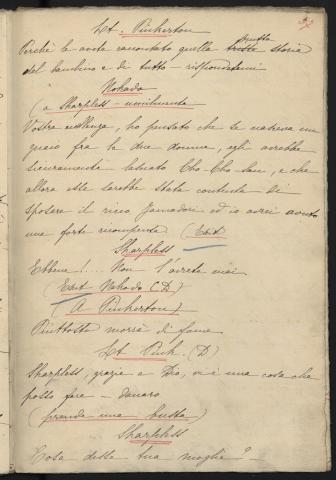 Lt. Pinkerton
Perchè le avete raccontato quella brutta storia
del bambino e di tutto - rispondetemi
Nakado
(a Sharpless - umilmente
Vostra eccellenza, ho pensato che se nasceva un
guaio fra le due donne, egli avrebbe
sicuramente lasciato Cho-Cho-San, e che
allora essa sarebbe stata contenta di
sposare il ricco Yamadori ed io avrei avuto
una forte ricompensa (Exit
Sharpless
Ebbene!... Non l'avrete mai
(Exit Nakado (D)
(A Pinkerton)
Piuttosto morrà di fame
Lt Pink. (D)
Sharpless, grazie a Dio, vi è una cosa che
posso fare - danaro
(prende una busta)
Sharpless
Cosa desse tua moglie? -